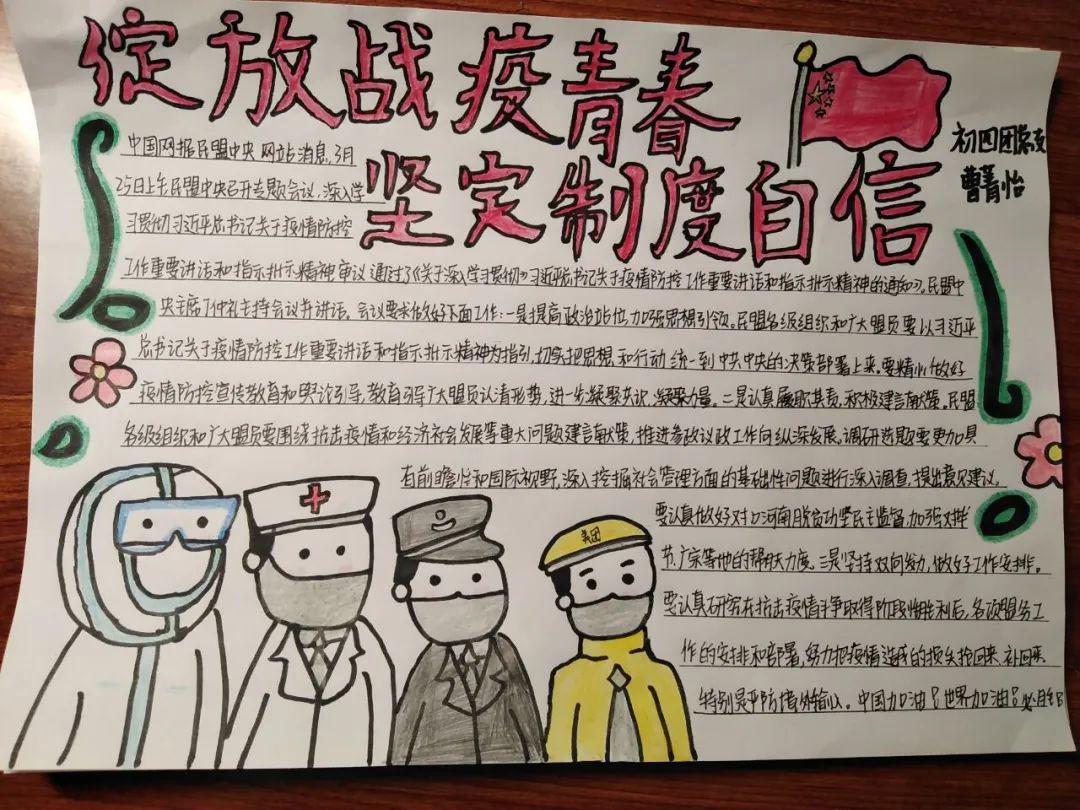 绽放战疫青春
坚定制度自信
初四团总支
曹菁怡
中国网报民盟中央网站消息,3月
25日上午民盟中央召开专题会议,深入学
习贯彻习近平总书记关于疫情防控
工作重要讲话和指示批示精神审议通过了《关于深入学习贯彻》习近平总书记关于疫情防控工作重要讲话和指示批示精神的通知》。民盟中
央主席丁仲礼主持会议并讲话。会议要求做好下面工作:一是提高政治站位,加强思想引领。民盟各级组织和广大盟员要以习近平
总书记关于疫情防控工作重要讲话和指示批示精神为指引,切实把思想和行动统一到中共中央的决策部署上来。要精心做好
疫情防控宣传教育和舆论引导,教育引导广大盟员认清形势,进一步凝聚共识,凝聚力量。二是认真履职其责,积极建言献策。民盟
各级组织和广大盟员要围绕抗击疫情和经济社会发展等重大问题建言献策,推进参政议政工作向纵深发展。调研选题要更加具
有前瞻性和国际视野,深入挖掘社会管理方面的基础性问题进行深入调查,提出意见建议。
要认真做好对口河南脱贫攻坚民主监督,加强对毕
节、广宗等地的帮扶力度。三是坚持双向发力,做好工作安排。
要认真研究在抗击疫情斗争取得阶段性胜利后,各项盟务工
作的安排和部署,努力把疫情造成的损失抢回来、补回来,
特别是严防境外输入。中国加油!世界加油!
美团